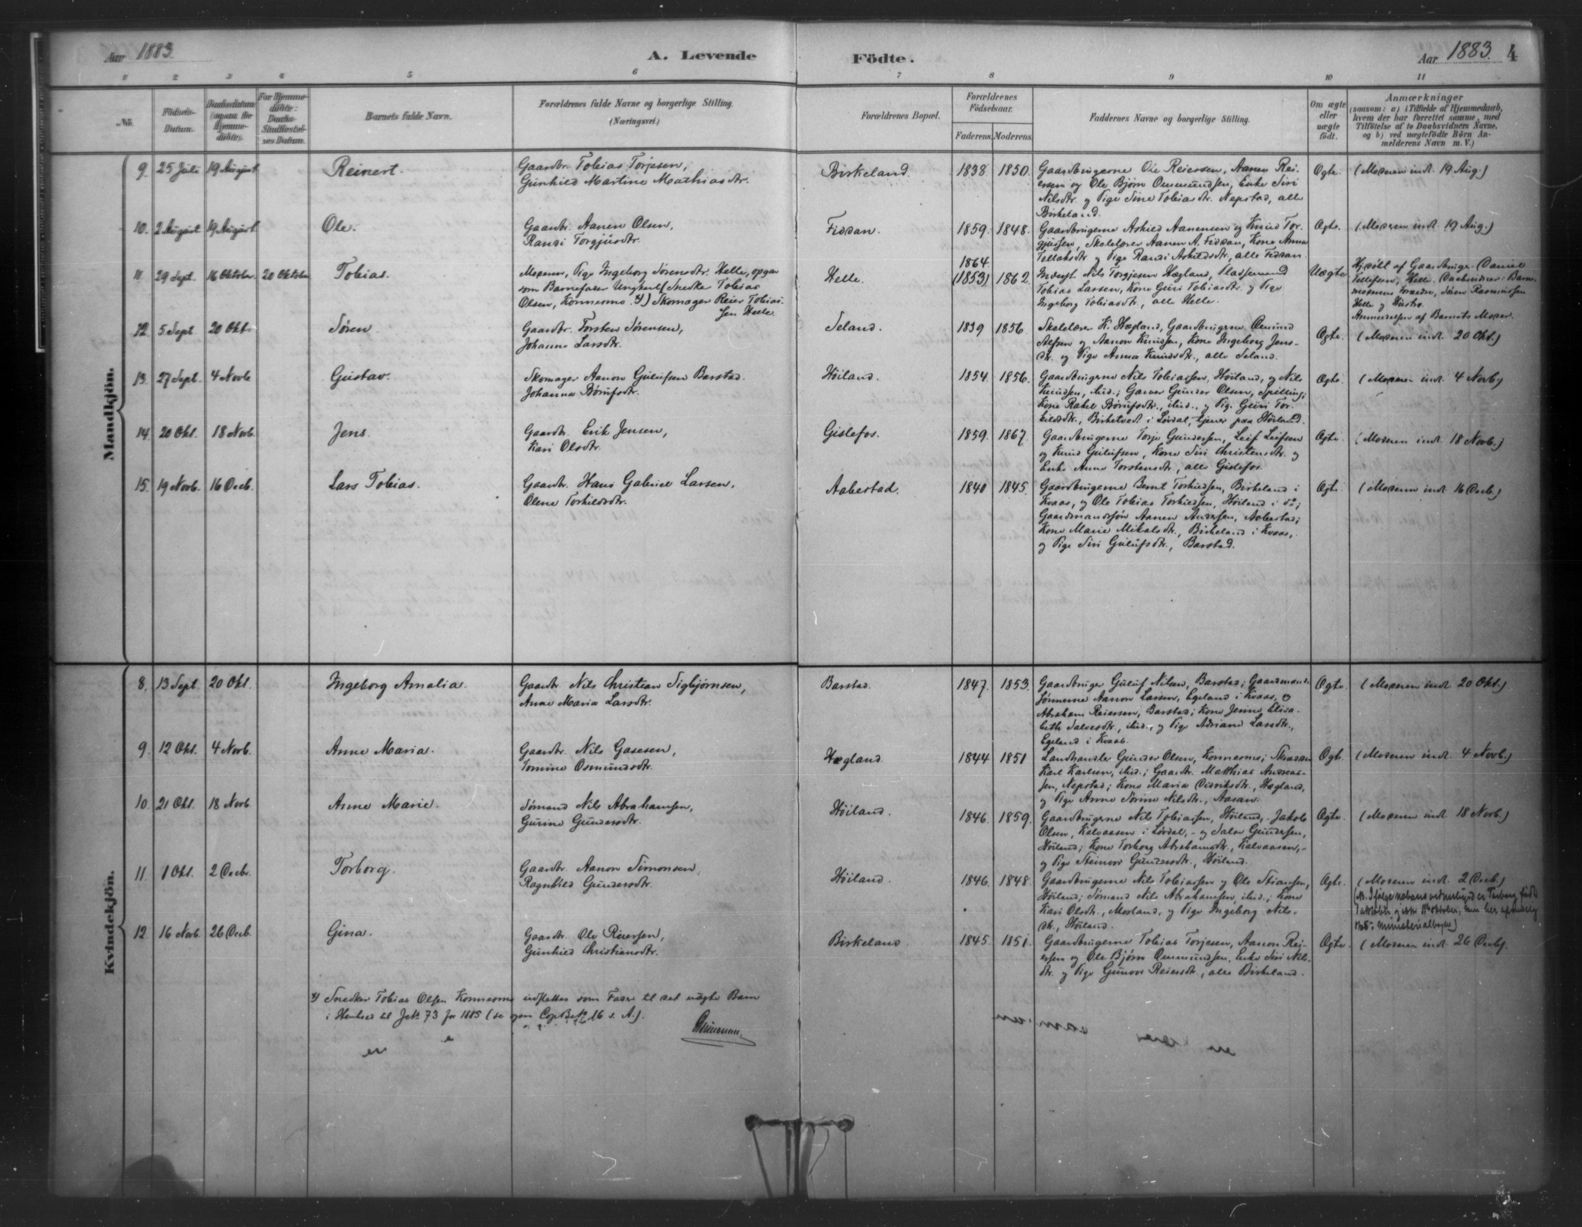 Aar 1883.
A. Levende
Fødte.
Aar 1883. 4
1 2 3 4 5 6 7 8 9 10 11
No.
Fødsels-Datum.
Barnets fulde Navn.
Forældrenes fulde Navne og borgerlige Stilling.
(Næringsvei)
Forældrenes Bopæl.
Forældrenes Fødselsaar.
Faderens. Moderens.
Faddernes Navne og borgerlige Stilling.
Om ægte eller uægte født.
Anmærkninger
(saasom: a) i Tilfælde af Hjemmedaab, hvem der har forrettet samme, med Tilføielse af to Daabsvidners Navne, og b) ved uegtefødte Børn Anmelderens Navn m. V.)
Mandkjøn.
9. 25 Juli 19 August Reinert. Gaardbr. Tobias Torjesen,
Gunhild Martine Mathiasdtr. Birkeland. 1838 1850. Gaardbrugerne Ole Reiersen, Aanen Rei-
ersen og Ole Bjørn Ommundsen, Enke Siri
Nilsdtr. og Pige Sine Tobiasdtr. Nepstad, alle
Birkeland. Ægte. (Moderen indt. 19 Aug.)
10. 2 August 19 August Ole. Gaardbr. Aanen Olsen,
Randi Torgjusdtr. Fidsan. 1859. 1848. Gaardbrugerne Askild Aanensen og Knud Tor-
gjussen, Skolelærer Aanen A. Fidsan, Kone Anna
Tellefsdtr. og Pige Randi Askildsdtr., alle Fidsan. Ægte. (Moderen indt. 19 Aug.)
11. 29 Sept. 16 Oktober 20 Oktober Tobias. Moderen, Pige Ingeborg Sørensdtr. Helle, opgav
som Barnefader Ungkarl Snedker Tobias
Olsen, Konnesmo. *) Skomager Reier Tobias-
sen Helle. Helle. 1864 (1853) 1862. Inderst Nils Torgjesen Hægland, Pladsemand
Tobias Larsen, Kone Guri Tobiasdtr. og Pige
Ingeborg Tobiasdtr., alle Helle. Uægte. Hjdøbt af Gaardbruger Daniel
Tellefsen, Helle. Daabsvidner: Barne-
moderens Fader, Søren Rasmussen
Helle og Hustru.
Anmeldelsen af Barnets Moder.
12. 5 Sept. 20 Okt. Søren. Gaardbr. Torsten Sørensen,
Johanne Larsdtr. Seland. 1839 1856. Skolelærer K. Hægland, Gaardbrugerne Ømund
Alfsen og Aanon Knudsen, Kone Ingeborg Jens-
dtr. og Pige Anna Knudsdtr., alle Seland. Ægte. (Moderen indt. 20 Okt.)
13. 27 Sept. 4 Novb. Gustav. Skomager Aanon Gulufsen Barstad.
Johanna Børufsdtr. Høiland. 1854. 1856. Gaardbrugerne Nils Tobiassen, Høiland, og Nils
Knudsen, ibid.; Garver Gunder Olsen, Spilling;
Kone Rakel Børufsdtr., ibid., og Pige Guri Tor-
kildsdtr., Birketvedt i Lyngdal, tjener paa Høiland. Ægte. (Moderen indt. 4 Novb.)
14. 20 Okt. 18 Novb. Jens. Gaardbr. Erik Jensen,
Kari Olsdtr. Gislefos. 1859. 1867. Gaardbrugerne Torje Gundersen, Leif Leifsen
og Knud Gulufsen, Kone Siri Christensdtr. og
Enke Anne Torstensdtr., alle Gislefos. Ægte. (Moderen indt. 18 Novb.)
15. 19 Novb. 16 Decb. Lars Tobias. Gaardbr. Hans Gabriel Larsen,
Olene Torkildsdtr. Aabestad. 1840 1845. Gaardbrugerne Bernt Torkildsen, Birkeland i
Kvaas, og Ole Tobias Torkildsen, Høiland i do;
Gaardmandssøn Aanen Andersen, Aabestad;
Kone Marie Mikalsdtr., Birkeland i Kvaas,
og Pige Siri Gulufsdtr., Barstad. Ægte. (Moderen indt. 16 Decb.)
Kvindekjøn.
8. 13 Sept. 20 Okt. Ingeborg Amalia. Gaardbr. Nils Christian Sigbjørnsen,
Anne Maria Larsdtr. Barstad. 1847. 1853. Gaardbruger Guluf Nilsen, Barstad; Gaardmands-
Sønnerne Aanon Larsen, Egeland i Kvaas, og
Abraham Reiersen, Barstad; Kone Jenny Elisa-
beth Salvesdtr., ibid., og Pige Adriane Larsdtr.,
Egeland i Kvaas. Ægte. (Moderen indt. 20 Okt.)
9. 12 Okt. 4 Novb. Anne Maria. Gaardbr. Nils Gasesen,
Tomine Osmundsdtr. Hægland. 1844 1851 Landhandler Gunder Olsen, Konnesmo;
Karl Karlsen, ibid.; Gaardbr. Matthias Andreas-
sen, Nepstad; Kone Maria Didriksdtr., Hægland,
og Pige Anne Serine Nilsdtr., Aasan. Ægte. (Moderen indt. 4 Novb.)
10. 21 Okt. 18 Novb. Anne Marie. Sømand Nils Abrahamsen,
Gurine Gundersdtr. Høiland. 1846. 1859. Gaardbrugerne Nils Tobiassen, Høiland, Jakob
Olsen, Kalvaasen i Lyngdal, og Salve Gundersen,
Høiland; Kone Torborg Abrahamsdtr., Kalvaasen,
og Pige Steinvor Gundersdtr., Høiland. Ægte. (Moderen indt. 18 Novb.)
11. 1 Okt. 2 Decbr. Torborg. Gaardbr. Aanon Simonsen,
Ragnhild Gundersdtr. Høiland. 1846. 1848. Gaardbrugerne Nils Tobiassen og Ole Stiansen,
Høiland; Sømand Nils Abrahamsen, ibid.; Kone
Kari Olsdtr., Morland, og Pige Ingeborg Nils-
dtr., Høiland. Ægte. (Moderen indt. 2 Decb.)
12. 16 Novb. 26 Decb. Gina. Gaardbr. Ole Reiersen,
Gunhild Christiansdtr. Birkeland. 1845. 1851. Gaardbrugerne Tobias Torjesen, Aanon Rei-
ersen og Ole Bjørn Ommundsen, Enke Siri Nils-
dtr. og Pige Gunvor Reiersdtr., alle Birkeland. Ægte. (Moderen indt. 26 Decb.)
*) Snedker Tobias Olsen Konnesmo udslettes som Fader til det uægte Barn
i Henhold til Jr. 73 for 1885 (se ogsaa Copibok 16 s. A.).